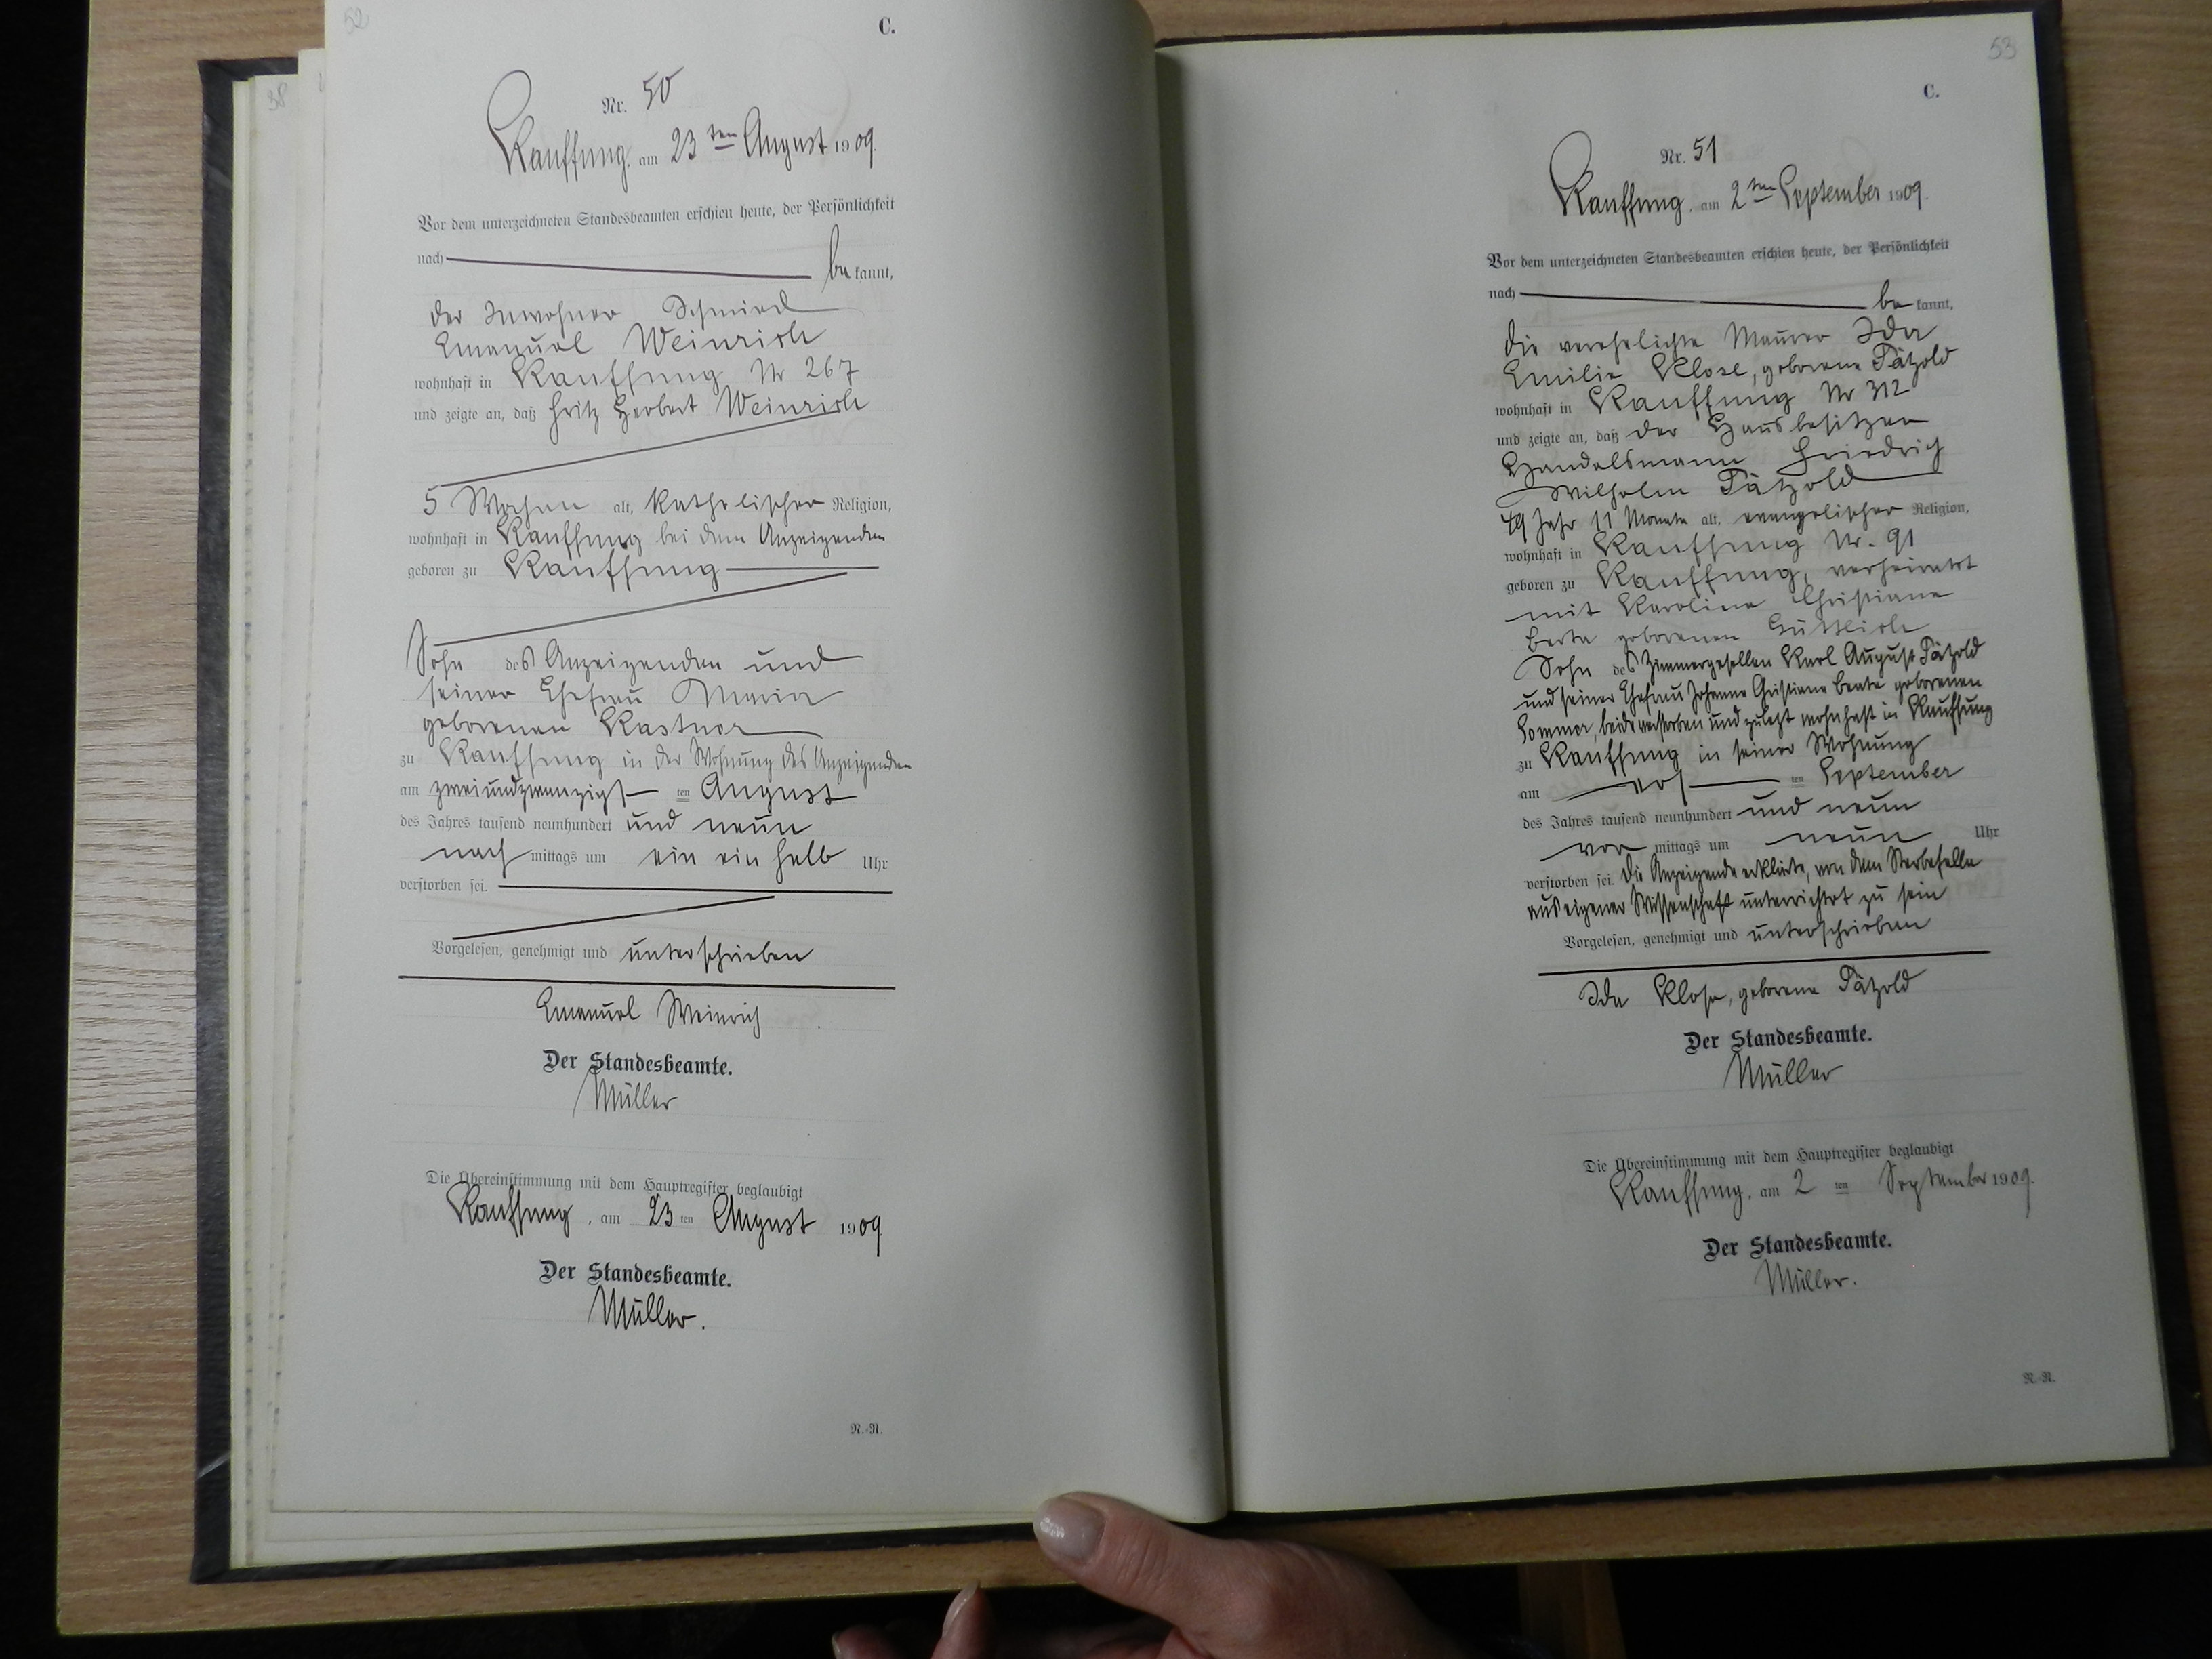 52
C.
Nr. 50
Kauffung, am 23ten August 1909.
Vor dem unterzeichneten Standesbeamten erschien heute, der Persönlichkeit
nach be kannt,
der Inwohner Schmied
Emanuel Weinrich
wohnhaft in Kauffung Nr 267
und zeigte an, daß Fritz Herbert Weinrich
5 Wochen alt, katholischer Religion,
wohnhaft in Kauffung bei dem Anzeigenden
geboren zu Kauffung
Sohn des Anzeigenden und
seiner Ehefrau Maria
geborenen Kastner
zu Kauffung in der Wohnung des Anzeigenden
am zweiundzwanzigs ten August
des Jahres tausend neunhundert und neun
nach mittags um ein ein halb Uhr
verstorben sei.
Vorgelesen, genehmigt und unterschrieben
Emanuel Weinrich
Der Standesbeamte.
Müller
Die Übereinstimmung mit dem Hauptregister beglaubigt
Kauffung, am 23 ten August 1909.
Der Standesbeamte.
Müller.
N.-N.
38
53
C.
Nr. 51
Kauffung, am 2ten September 1909.
Vor dem unterzeichneten Standesbeamten erschien heute, der Persönlichkeit
nach be kannt,
die verehelichte Maurer Ida
Emilie Klose, geborene Pätzold
wohnhaft in Kauffung Nr 312
und zeigte an, daß der Hausbesitzer
Handelsmann Friedrich
Wilhelm Pätzold
49 Jahr 11 Monate alt, evangelischer Religion,
wohnhaft in Kauffung Nr. 91
geboren zu Kauffung, verheiratet
mit Karoline Christiane
Berta geborenen
Sohn des Zimmergesellen Karl August Pätzold
und seiner Ehefrau Johanne Christiane Beate geborenen
Sommer, beide verstorben und zuletzt wohnhaft in Kauffung
zu Kauffung in seiner Wohnung
am ers ten September
des Jahres tausend neunhundert und neun
vor mittags um neun Uhr
verstorben sei. Die Anzeigende erklärte, von dem Sterbefalle
aus eigener Wissenschaft unterrichtet zu sein
Vorgelesen, genehmigt und unterschrieben
Ida Klose, geborene Pätzold
Der Standesbeamte.
Müller
Die Übereinstimmung mit dem Hauptregister beglaubigt
Kauffung, am 2 ten September 1909.
Der Standesbeamte.
Müller.
N.-N.